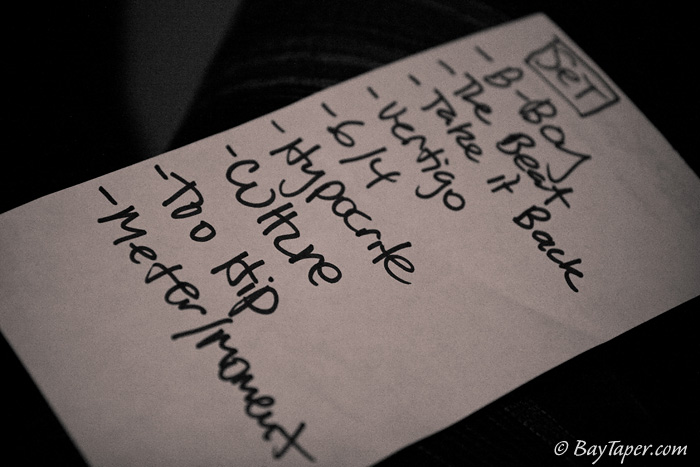 SeT
- B-Boy
- The Beat
- Take it Back
- Vertigo
- 6/4
- Hypocrite
- Culture
- Too Hip
- Meter/moment
© BayTaper.com